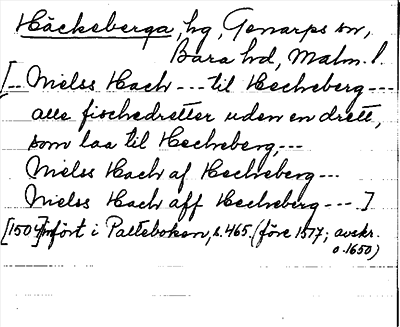 Häckeberga, hg, Genarps sn,
Bara hd, Malm. l.
[-- Nielss Hack --- til Heckeberg ---
alle fischedretter uden en drett,
som laa til Heckeberg, ---
Nielss Hack af Heckeberg ---
Nielss Hack aff Heckeberg --- ]
[1504] infört i Palteboken, s. 465. (före 1517; avskr.
o. 1650)